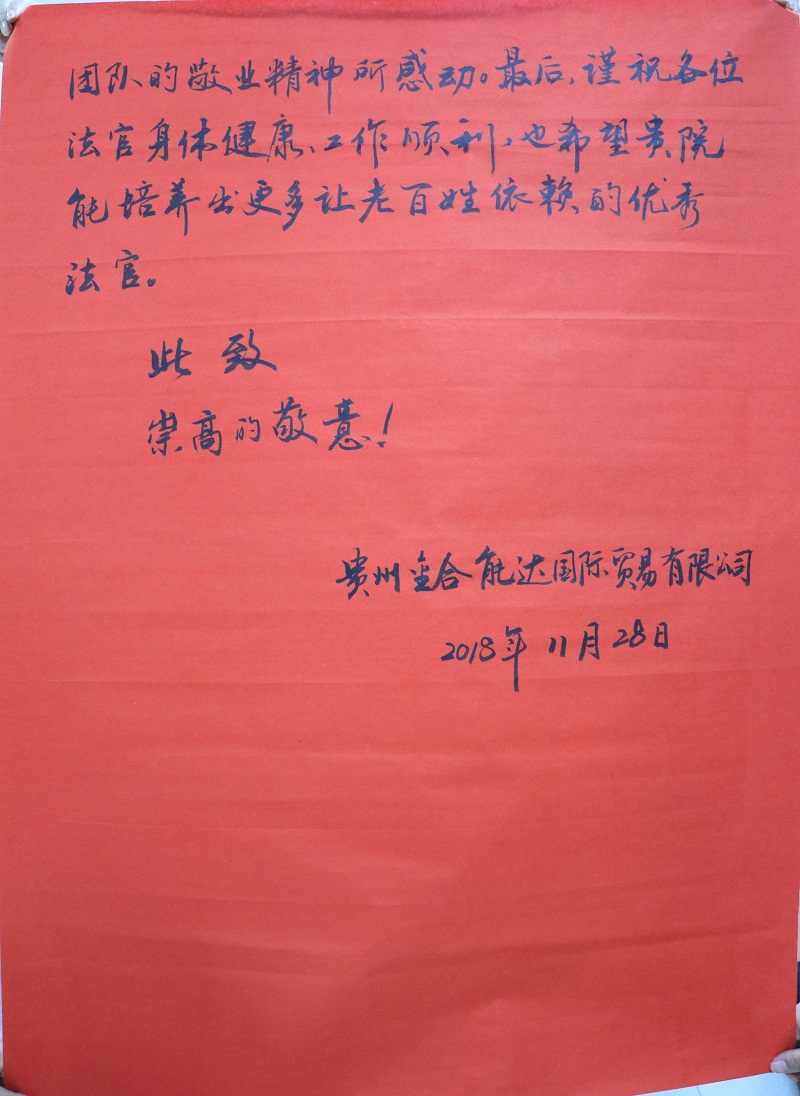 团队的敬业精神所感动。最后,谨祝各位
法官身体健康、工作顺利,也希望贵院
能培养出更多让老百姓依赖的优秀
法官。
此致
崇高的敬意!
贵州金合能达国际贸易有限公司
2018年11月28日